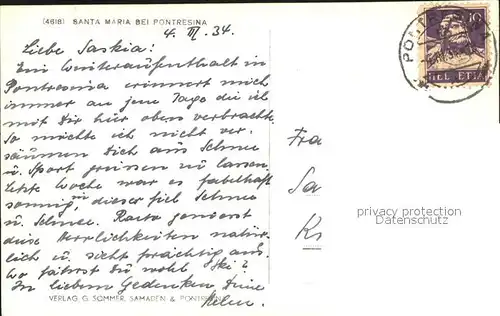 (4618) SANTA MARIA BEI PONTRESINA
4. III. 34.
Liebe Saskia:
Ein Winteraufenthalt in
Pontresina erinnert mich
immer an jene Tage die ich
mit Dir hier oben verbrachte.
So möchte ich nicht ver-
säumen Dich aus Schnee
u. Sport grüssen zu lassen.
Letzte Woche war es fabelhaft
sonnig, dieser viel Schnee
u. Schnee. Raeto geniesst
diese Herrlichkeiten natür-
lich u. sieht prächtig aus.
Wo fährst Du wohl Ski?
In liebem Gedenken, Deine
Helen.
VERLAG G. SOMMER, SAMADEN & PONTRESINA
10
HELVETIA
PONTRE
Fra
Sa
K
privacy protection
Datenschutz